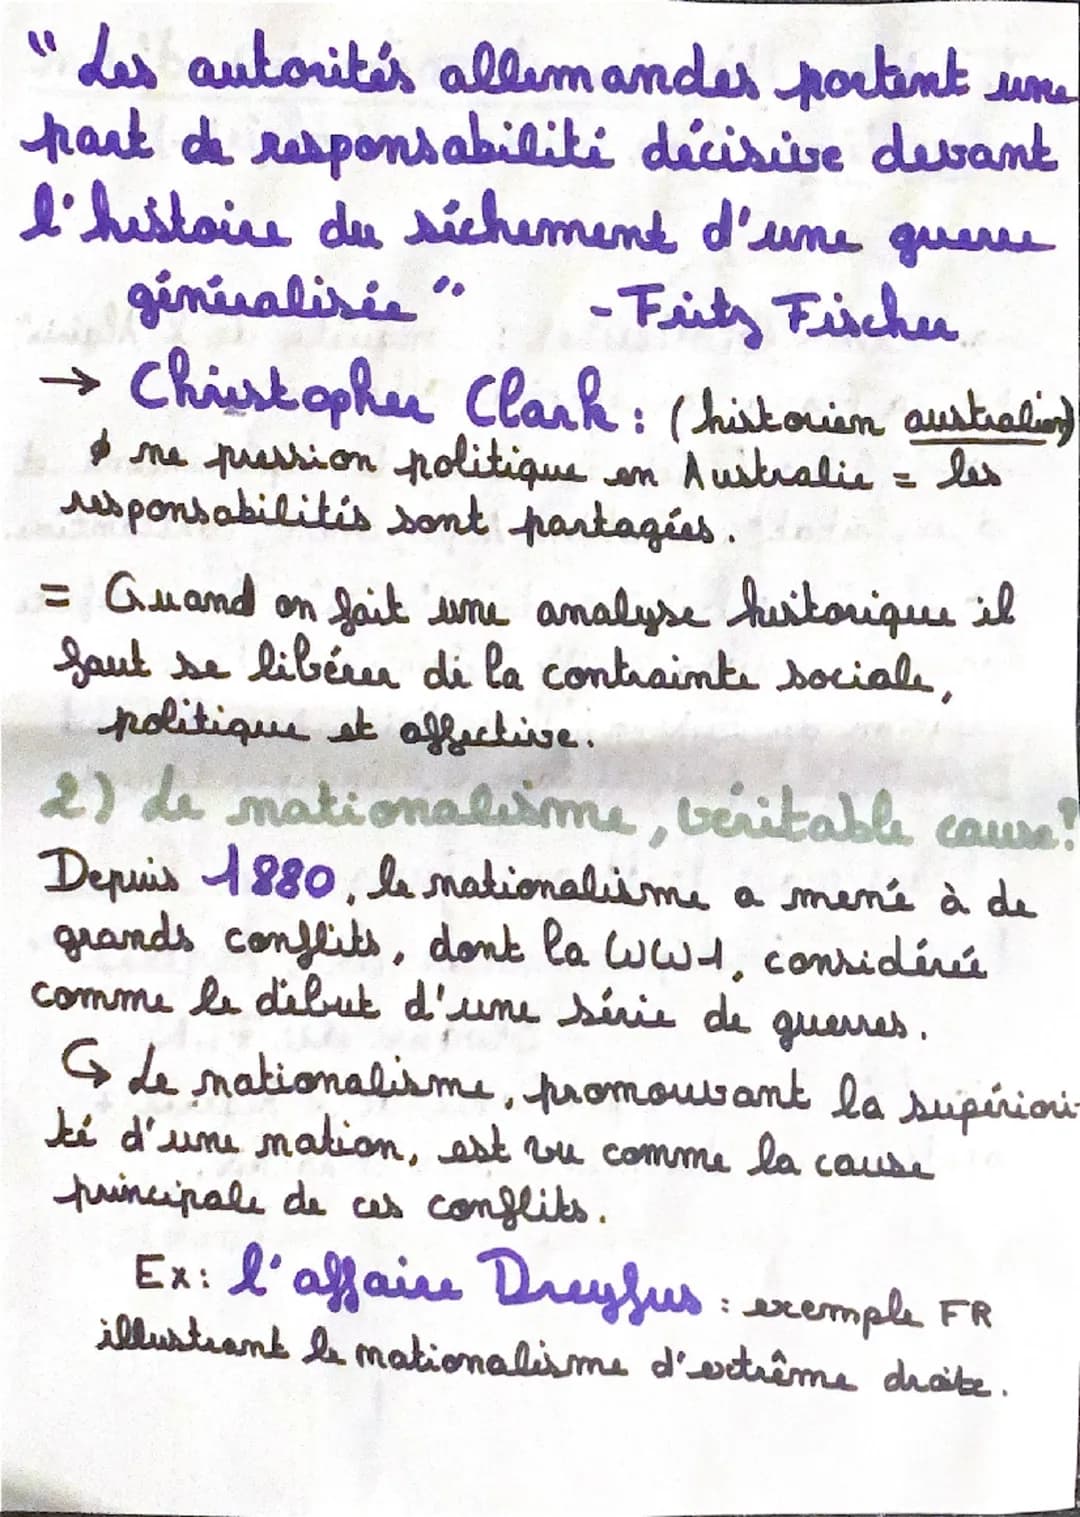 " Les autorités allemandes portent une
part de responsabilité décisive devant
l'histoire du séchement d'une guerre
généralisée " - Fritz Fischer
→ Christopher Clark : ( historien australien)
ne pression politique en Australie = les
responsabilités sont partagées.
= Quand on fait une analyse historique il
faut se libérer de la contrainte sociale,
politique et affective.
2) Le nationalisme, véritable cause?
Depuis 1880, le nationalisme a mené à de
grands conflits, dont la WW1, considérée
comme le début d'une série de guerres.
↳ Le nationalisme, promouvant la supériori-
té d'une nation, est vu comme la cause
principale de ces conflits.
Ex: l'affaire Dreyfus : exemple FR
illustrant le nationalisme d'extrême droite.